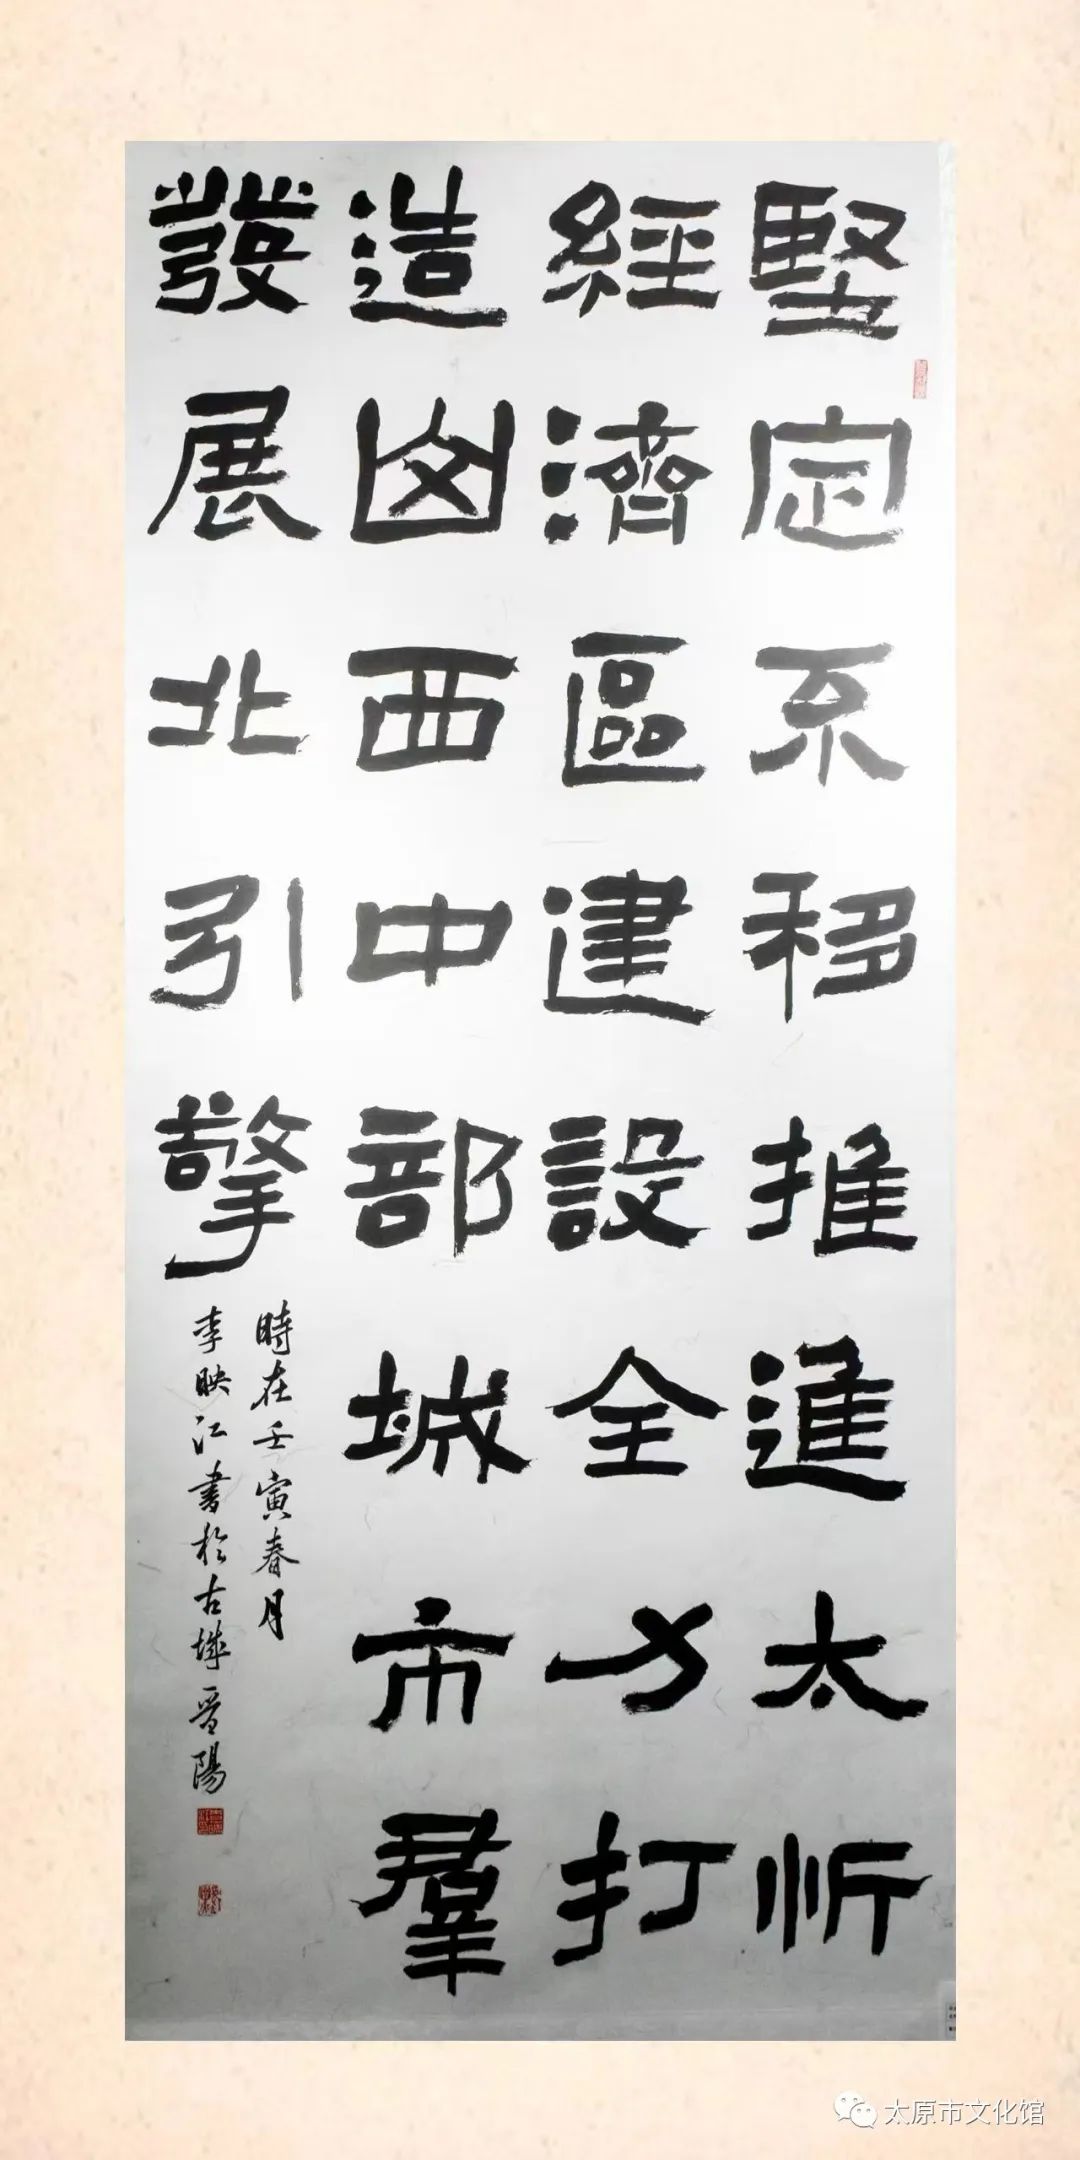 堅定不移推進太忻
經濟區建設全力打
造山西中部城市羣
發展北引擎
時在壬寅春月
李映江書於古城晉陽
太原市文化馆